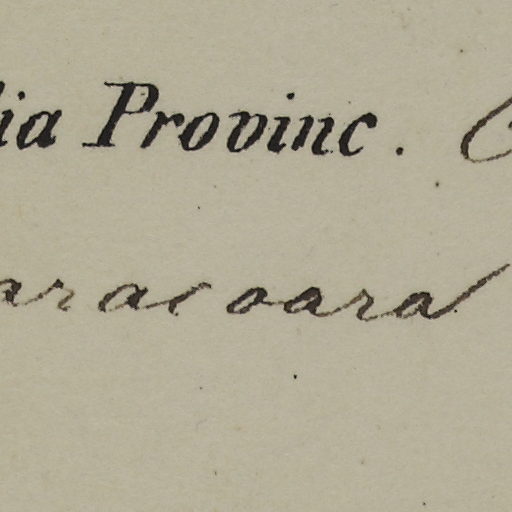 ia Provinc.
aracoara